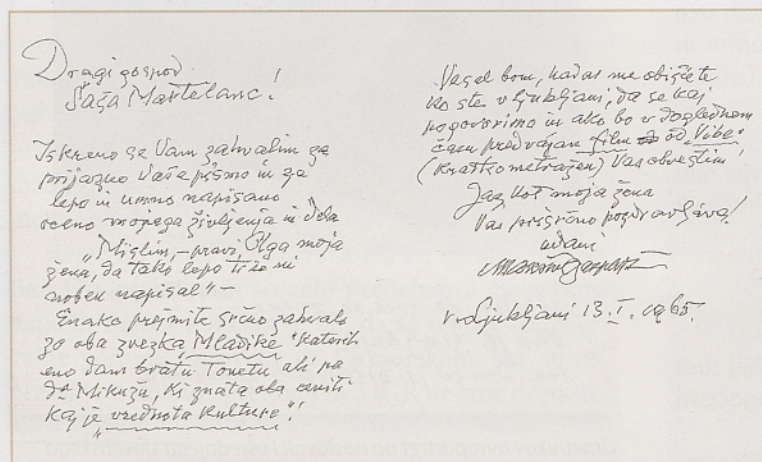 Dragi gospod
Saša Martelanc!
Iskreno se Vam zahvalim za
prijazno Vaše pismo in za
lepo in umno napisano
oceno mojega življenja in dela
"Mislim, – pravi Olga moja
žena, da tako lepo ti še ni
noben napisal" –
Enako prejmite srčno zahvalo
za oba zvezka "Mladike" katerih
eno dam bratu Tonetu ali pa
dr Mikužu, ki znata oba ceniti
kaj je "vrednota kulture"!
Vesel bom, kadar me obiščete
ko ste v Ljubljani, da se kaj
pogovorimo in ako bo v doglednem
času predvajan film od "Vibe"
(kratkometražen) Vas obvestim!
Jaz kot moja žena
Vas prisrčno pozdravljava!
udani
v Ljubljani 13. I. 1965.